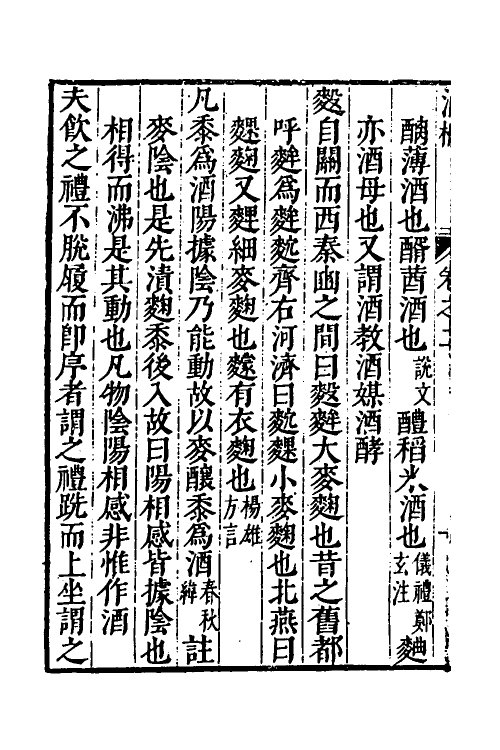 酒概 卷之二
醨薄酒也醑莤酒也說文醴稻米酒也儀禮鄭玄注麯
亦酒母也又謂酒教酒媒酒酵
𪍑自關而西秦豳之間曰𪍑䴺大麥麴也昔之舊都
呼䴺為䴺䴬齊右河濟曰䴬䴹小麥麴也北燕曰
䴹麴又䴽細麥麴也䴿有衣麴也楊雄方言
凡黍為酒陽據陰乃能動故以麥釀黍為酒春秋緯註
麥陰也是先漬麴黍後入故曰陽相感皆據陰也
相得而沸是其動也凡物陰陽相感非惟作酒
夫飲之禮不脫屨而卽序者謂之禮跣而上坐謂之